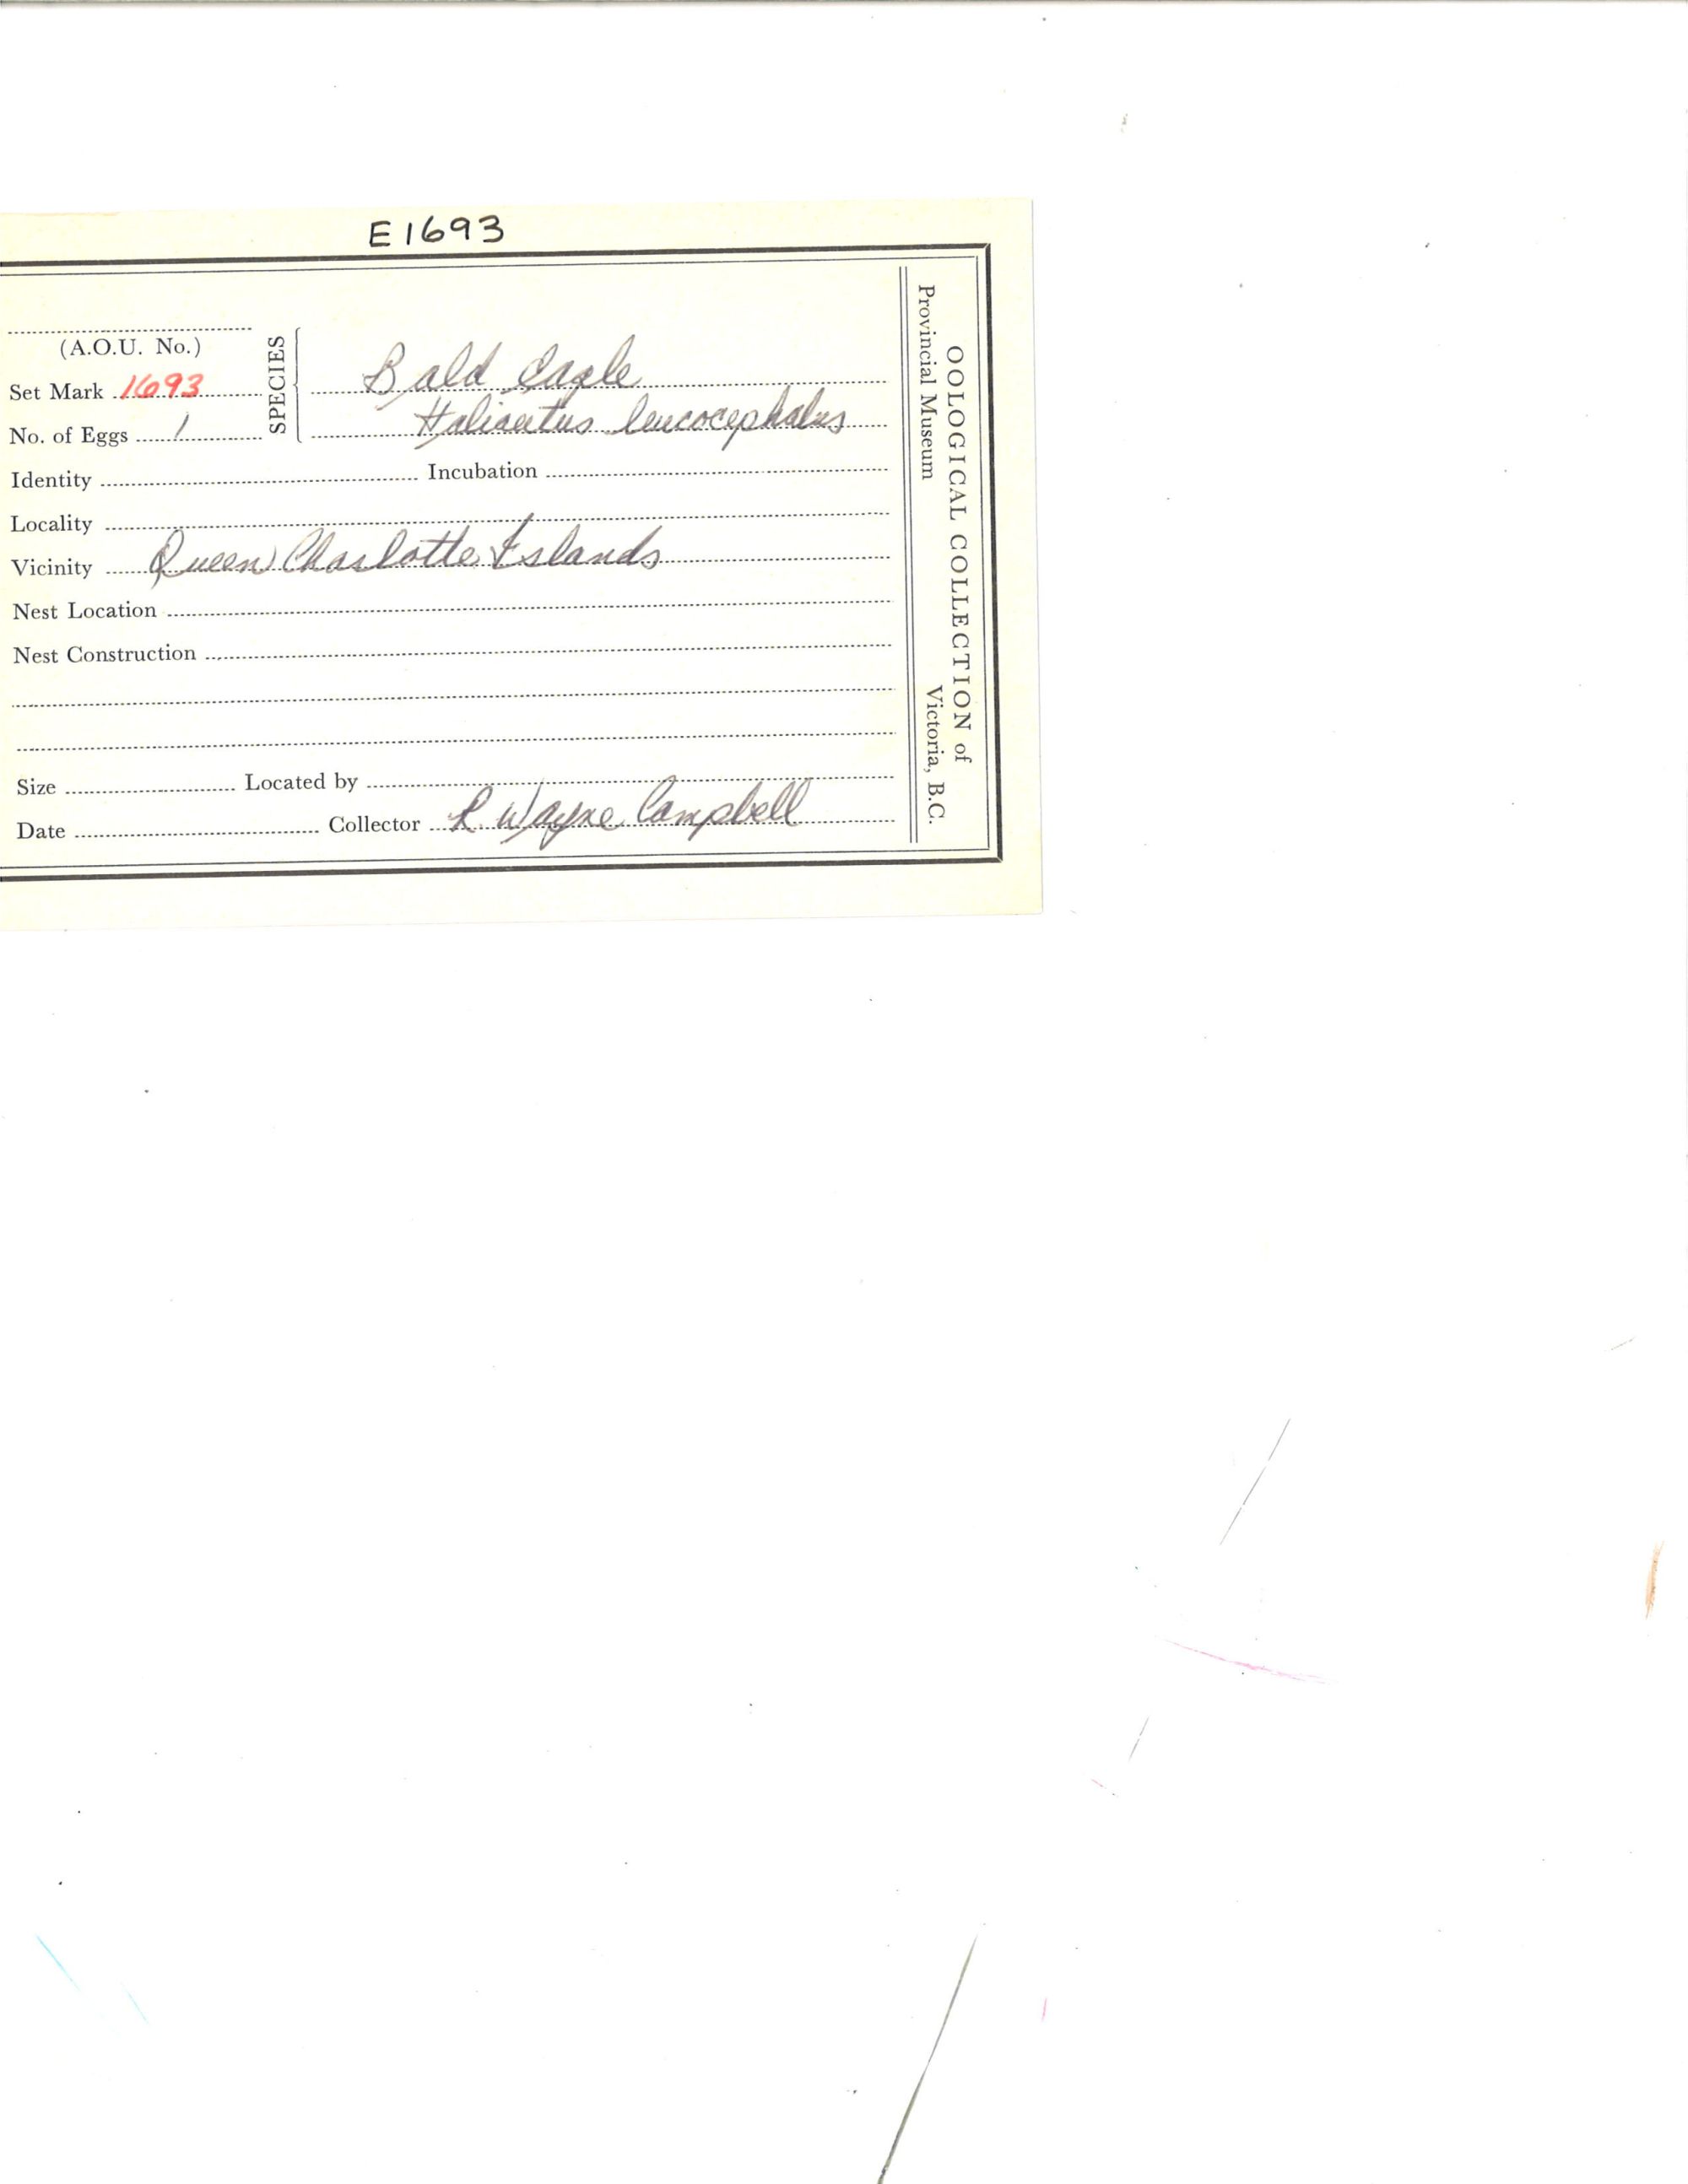 E1693
(A.O.U. No.)
Set Mark 1693
No. of Eggs 1
SPECIES
Bald Eagle
Haliaeetus leucocephalus
Identity Incubation
Locality
Vicinity Queen Charlotte Islands
Nest Location
Nest Construction
Size Located by
Date Collector R. Wayne Campbell
OOLOGICAL COLLECTION of
Provincial Museum Victoria, B.C.